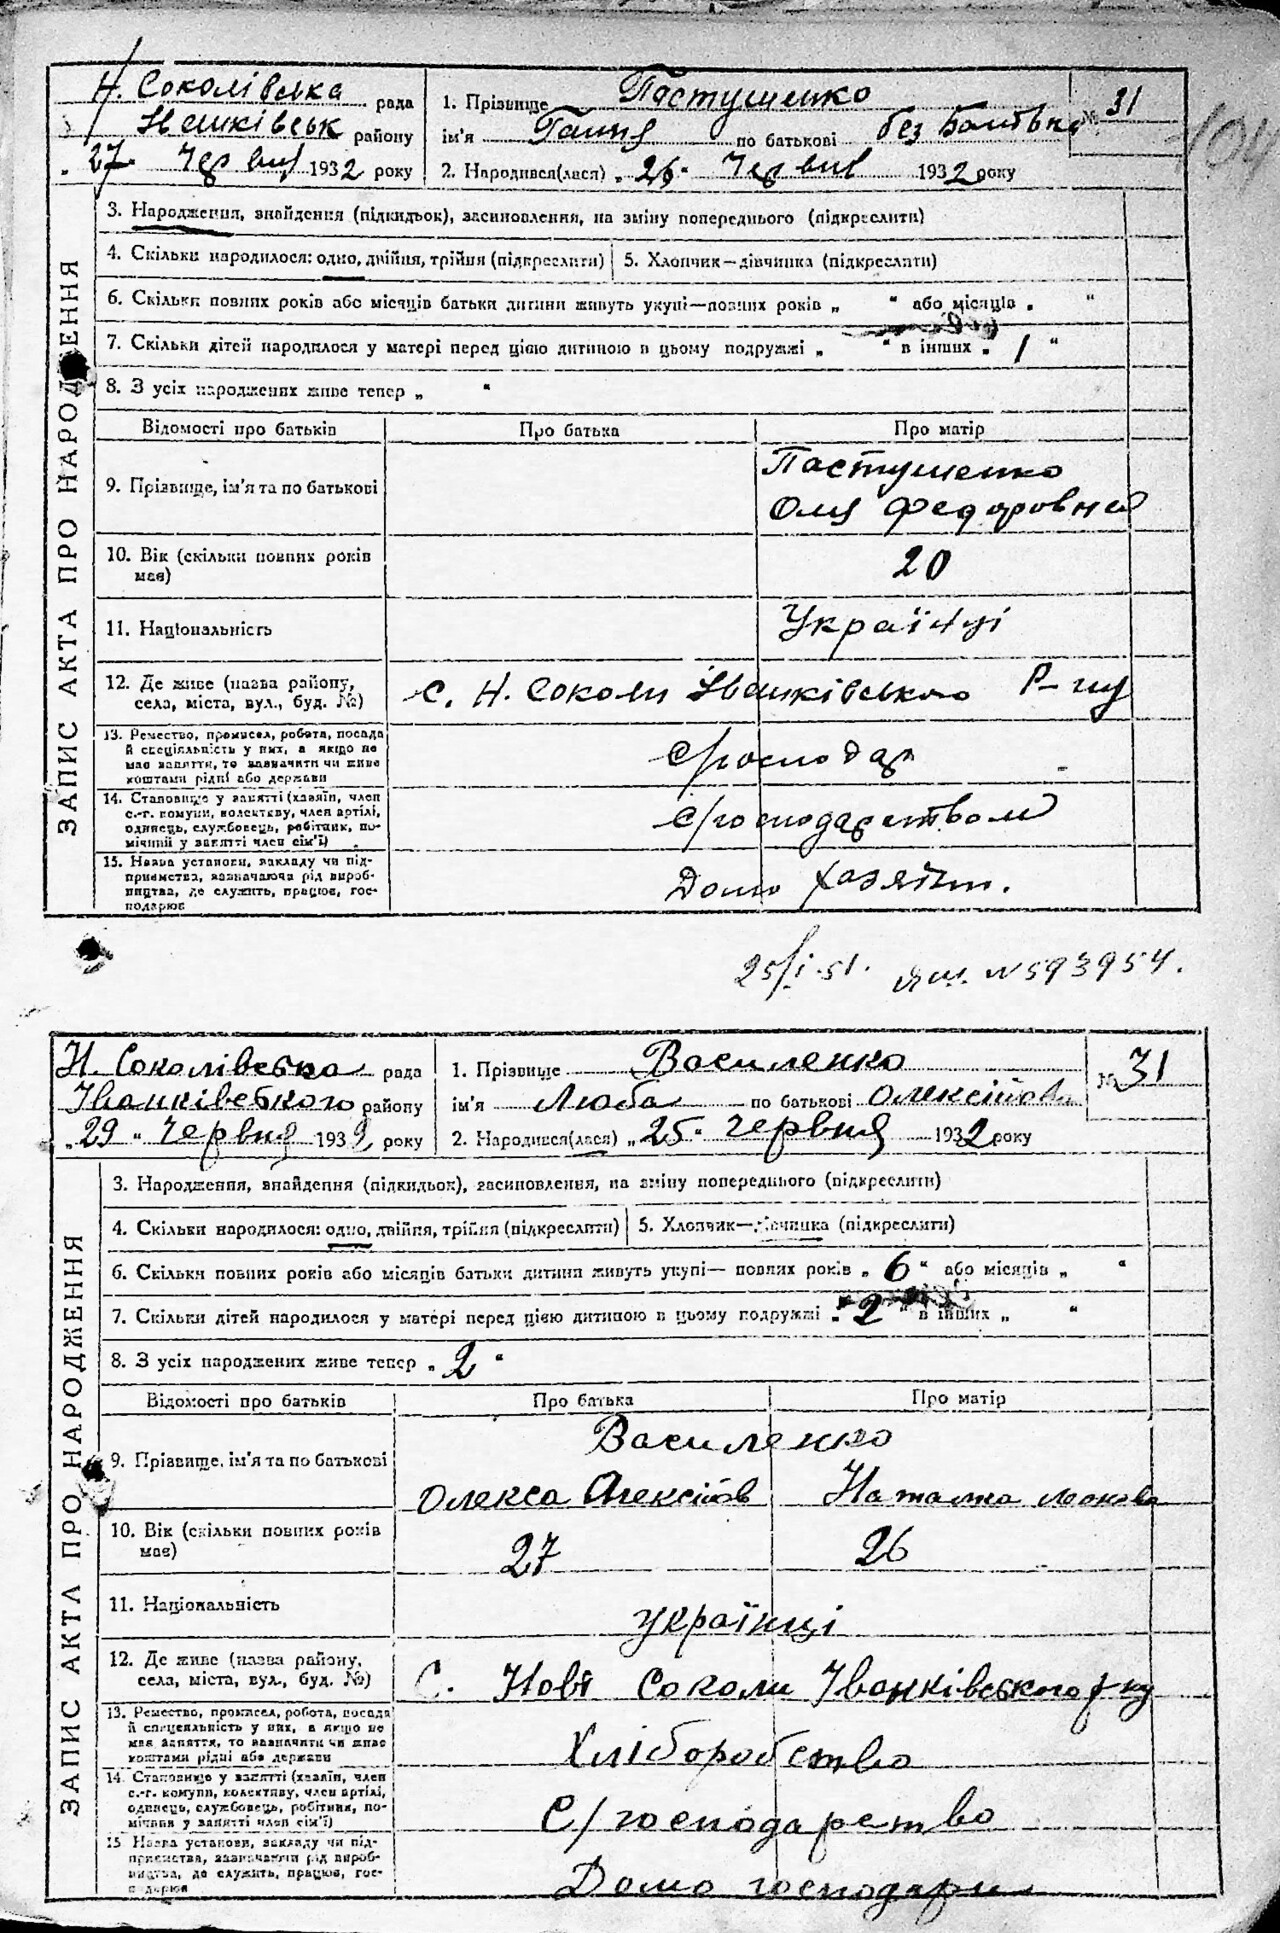 Н. Соколівська рада
Іванківськ району
„27" Червня 1932 року
1. Прізвище Пастушенко
ім'я Ганна по батькові без батька
2. Народився(лася) „26" Червня 1932 року
№ 31
104
ЗАПИС АКТА ПРО НАРОДЖЕННЯ
3. Народження, знайдення (підкидьок), засиновлення, на зміну попереднього (підкреслити)
4. Скільки народилося: одно, двійня, трійня (підкреслити) 5. Хлопчик—дівчинка (підкреслити)
6. Скільки повних років або місяців батьки дитини живуть укупі—повних років „ " або місяців „ "
7. Скільки дітей народилося у матері перед цією дитиною в цьому подружжі „ " в інших „ 1 "
8. З усіх народжених живе тепер „ "
Відомості про батьків Про батька Про матір
9. Прізвище, ім'я та по батькові
Пастушенко
Оля Федоровна
10. Вік (скільки повних років має)
20
11. Національність
Українці
12. Де живе (назва району,
села, міста, вул., буд. №)
с. Н. Соколи Іванківського р-ну
13. Ремество, промисел, робота, посада
й спеціяльність у них, а якщо не
має заняття, то зазначити чи живе
коштами рідні або держави
С/господар
14. Становище у занятті (хазяїн, член
с.-г. комуни, колективу, член артілі,
одинець, службовець, робітник, по-
мічний у занятті член сім'ї)
С/господарством
15. Назва установи, закладу чи під-
приємства, зазначаючи рід вироб-
ництва, де служить, працює, гос-
подарює
Домо хазяїн.
25/I-51. № 593954.
Н. Соколівська рада
Іванківського району
„29" Червня 1932 року
1. Прізвище Василенко
ім'я Люба по батькові Олексіївна
2. Народився(лася) „25" Червня 1932 року
№ 31
ЗАПИС АКТА ПРО НАРОДЖЕННЯ
3. Народження, знайдення (підкидьок), засиновлення, на зміну попереднього (підкреслити)
4. Скільки народилося: одно, двійня, трійня (підкреслити) 5. Хлопчик—дівчинка (підкреслити)
6. Скільки повних років або місяців батьки дитини живуть укупі— повних років „ 6 " або місяців „ "
7. Скільки дітей народилося у матері перед цією дитиною в цьому подружжі „ 2 " в інших „ "
8. З усіх народжених живе тепер „ 2 "
Відомості про батьків Про батька Про матір
9. Прізвище, ім'я та по батькові
Василенко
Олекса Олексіїов Наталка
10. Вік (скільки повних років
має)
27 26
11. Національність
українці
12. Де живе (назва району,
села, міста, вул., буд. №)
С. Нові Соколи Іванківського р-ну
13. Ремество, промисел, робота, посада
й спецеяльність у них, а якщо не
має заняття, то зазначити чи живе
коштами рідні або держави
Хліборобство
14. Становище у занятті (хазяїн, член
с.-г. комуни, колективу, член артілі,
одинець, службовець, робітник, по-
мічник у занятті член сім'ї)
С/господарство
15 Назва установи, закладу чи під-
приємства, зазначаючи рід вироб-
ництва, де служить, працює, гос-
подарює
Домо господари